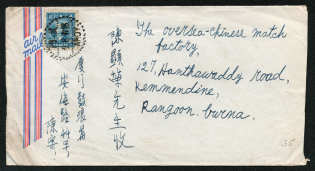 air mail
The oversea-chinese match
factory,
127, Hanthawaddy road,
Kemmendine,
Rangoon. burma.
陳顕榮先生收
厦门鼓浪屿
安海路
陳寄
135